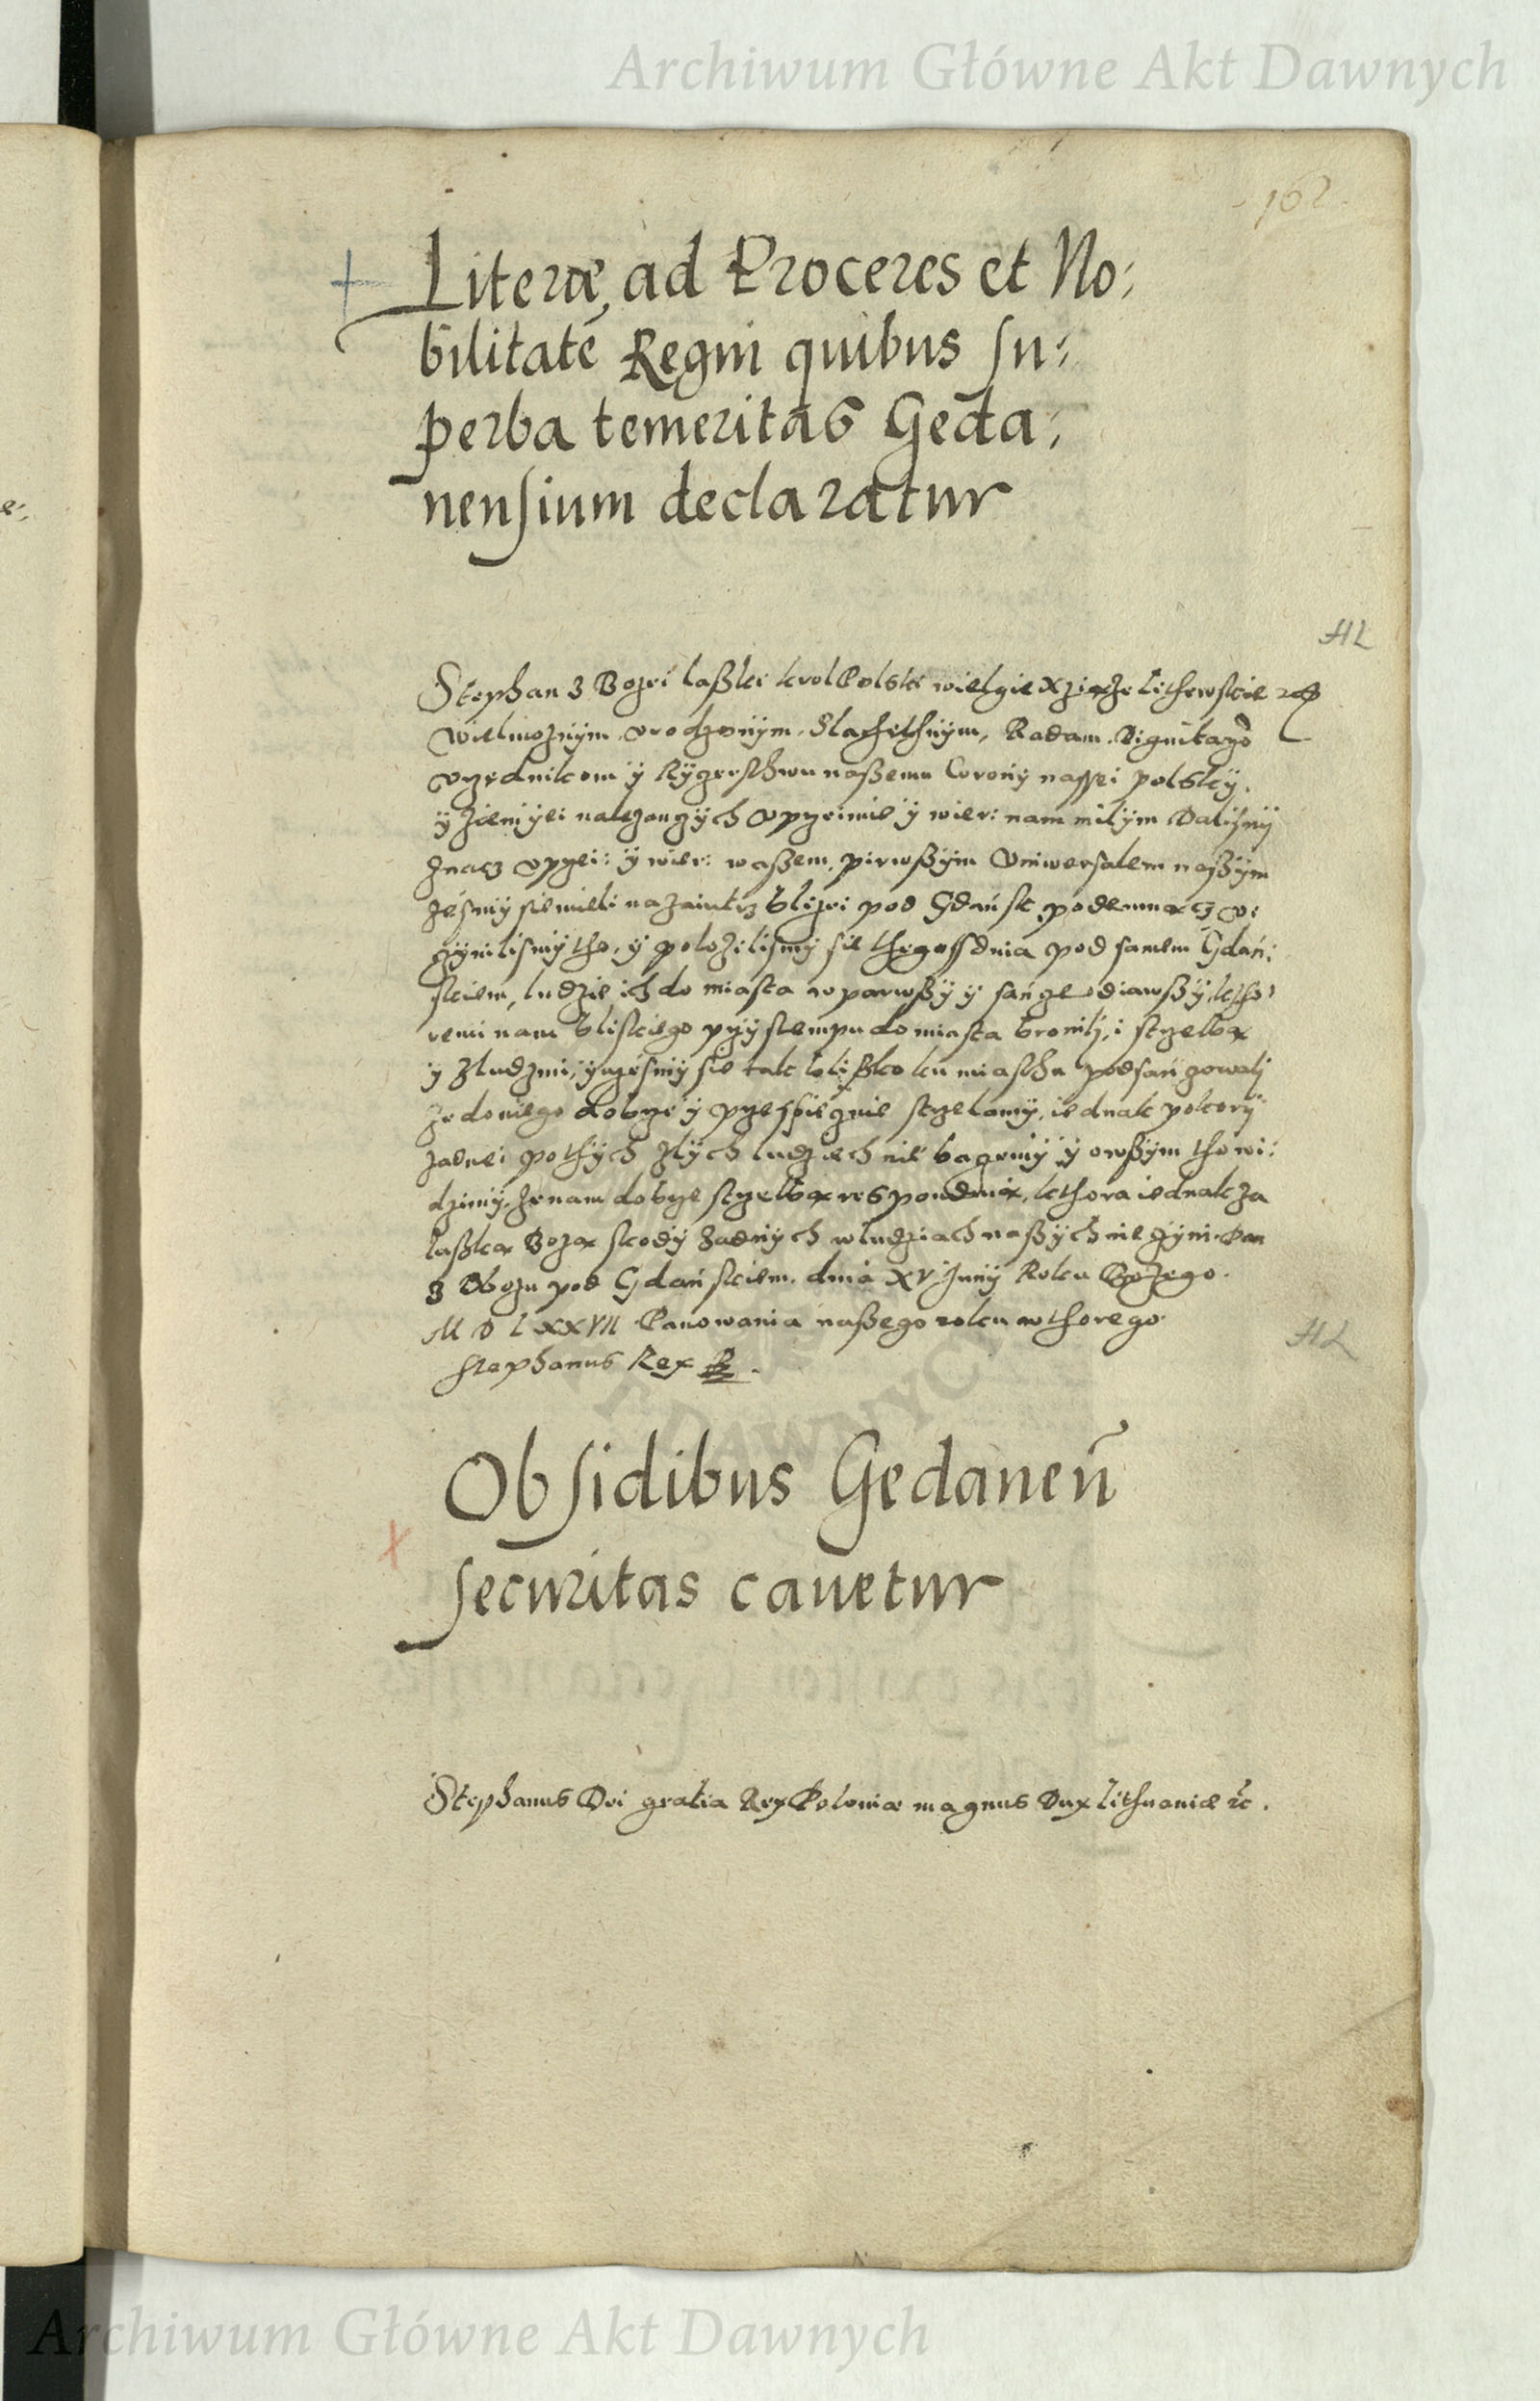 Archiwum Główne Akt Dawnych
162
Literæ ad Proceres et No:
bilitatē Regni quibus su:
perba temeritas Geda:
nensium declaratur
HL
Stephan z Bozei laßki krol Polski wielgie Xziąże Lithewskie
Wielmoznÿm. Vrodzonÿm. Slachethnÿm, Radam. Dignitarzō
Vrzednikom ÿ Rÿcerſthwu naßemu Coronÿ naſſei polskÿ.
ÿ ziemÿei nalezanczÿch Vprzeimie ÿ wier: nam milÿm Dalismÿ
znacz Vprzei: ÿ wier: waßem, pirwßÿm Vniwersalem naßÿm
zesmÿ sie mieli nazaiutrz blizei pod Gdańsk podemnącz v:
czÿnilismÿ tho, ÿ polozilismÿ sie thegoſſ dnia pod samem Gdań:
skiem, ludzie ich do miasta wparwßÿ ÿ sańcze odiawßÿ, ktho:
remi nam bliskiego przÿstempu do miasta bronilÿ, i strzelbą
ÿ z ludzmi, ÿ uzesmÿ sie tak blißko ku miasthu podsańcowalj
ze do niego dobrze ÿ przeſpiecznie strzelamÿ, iednak pokorÿ
zadnei po thÿch zlÿch ludziech nie baczemÿ ÿ owßÿm tho wi:
dzimÿ, ze nam dobrze strzelbą respondują, kthora iednak za
laßką Bozą skodÿ zadnÿch w ludziach naßÿch nie czÿni. Dan
z Obozu pod Gdańskiem. dnia XV Junÿ Roku Bozego.
M D L XXVII Panowania naßego roku wthorego
HL
Stephanus Rex
Obsidibus Gedaneñ
securitas cauetur
Stephanus Dei gratia Rex Poloniæ magnus Dux Lithuaniæ etc.
Archiwum Główne Akt Dawnych